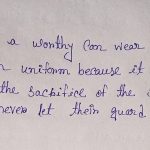 a worthy can wear
uniform because it
the sacrifice of the
never let their guard